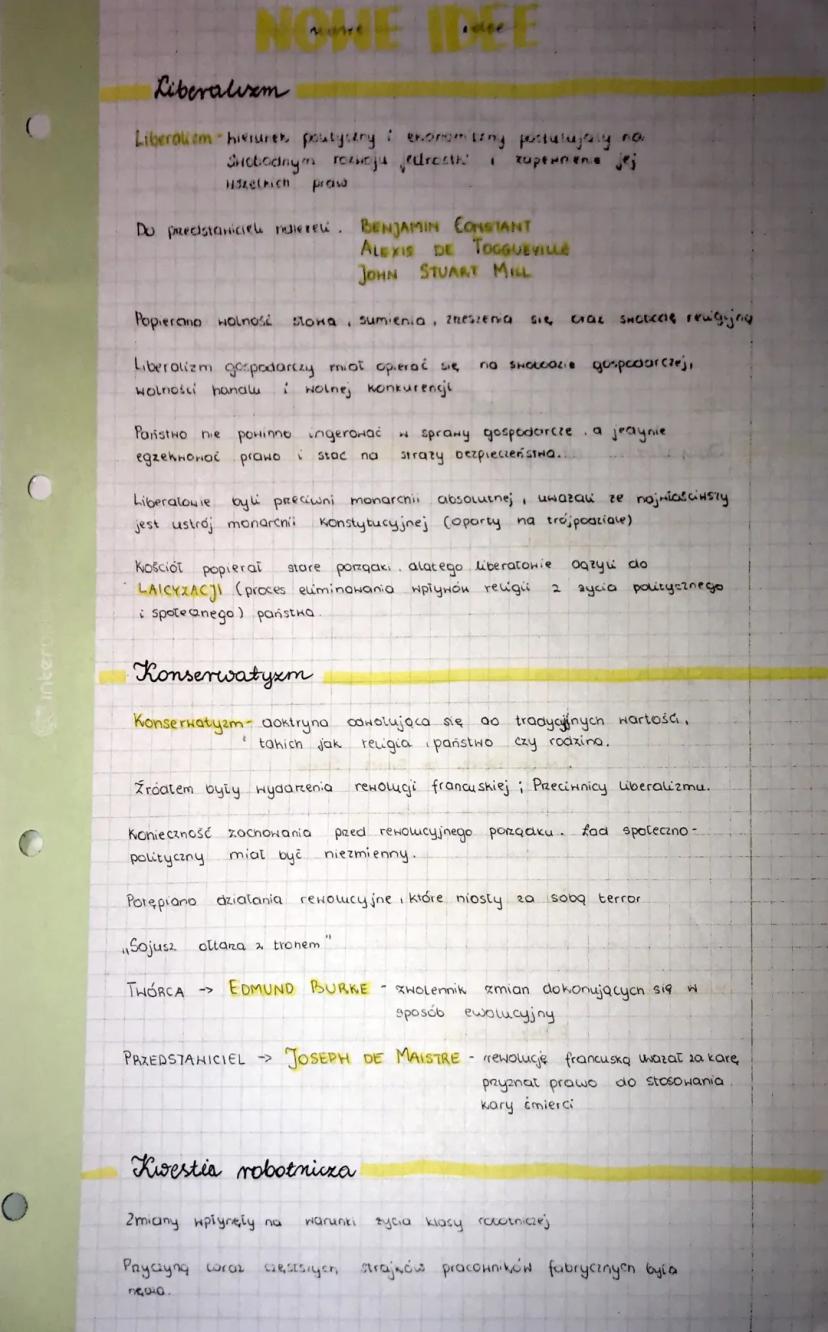 NOWE IDEE
Liberalizm
Liberalizm - kierunek polityczny i ekonomiczny postulujący na
swobodnym rozwoju jednostki i zapewnienie jej
wszelkich praw
Do przedstawicieli należeli: BENJAMIN CONSTANT
ALEXIS DE TOCGUEVILLE
JOHN STUART MILL
Popierano wolność słowa, sumienia, zrzeszenia się oraz swobodę religijną
Liberalizm gospodarczy miał opierać się na swobodzie gospodarczej,
wolności handlu i wolnej konkurencji
Państwo nie powinno ingerować w sprawy gospodarcze, a jedynie
egzekwować prawo i stać na straży bezpieczeństwa...
Liberałowie byli przeciwni monarchii absolutnej, uważali że najwłaściwszy
jest ustrój monarchii konstytucyjnej (oparty na trójpodziale)
Kościół popierał stare porządki, dlatego liberałowie dążyli do
LAICYZACJI (proces eliminowania wpływów religii z życia politycznego
i społecznego) państwa.
Konserwatyzm
Konserwatyzm - doktryna odwołująca się do tradycyjnych wartości,
takich jak religia, państwo czy rodzina.
Źródłem były wydarzenia rewolucji francuskiej; Przeciwnicy liberalizmu.
Konieczność zachowania przed rewolucyjnego porządku. Ład społeczno-
polityczny miał być niezmienny.
Potępiano działania rewolucyjne, które niosły za sobą terror
„Sojusz ołtarza z tronem"
TWÓRCA -> EDMUND BURKE - zwolennik zmian dokonujących się w
sposób ewolucyjny
PRZEDSTAWICIEL -> JOSEPH DE MAISTRE - rewolucję francuską uważał za karę,
przyznał prawo do stosowania
kary śmierci
Kwestia robotnicza
Zmiany wpłynęły na warunki życia klasy robotniczej
Przyczyną coraz częstszych strajków pracowników fabrycznych była
nędza.